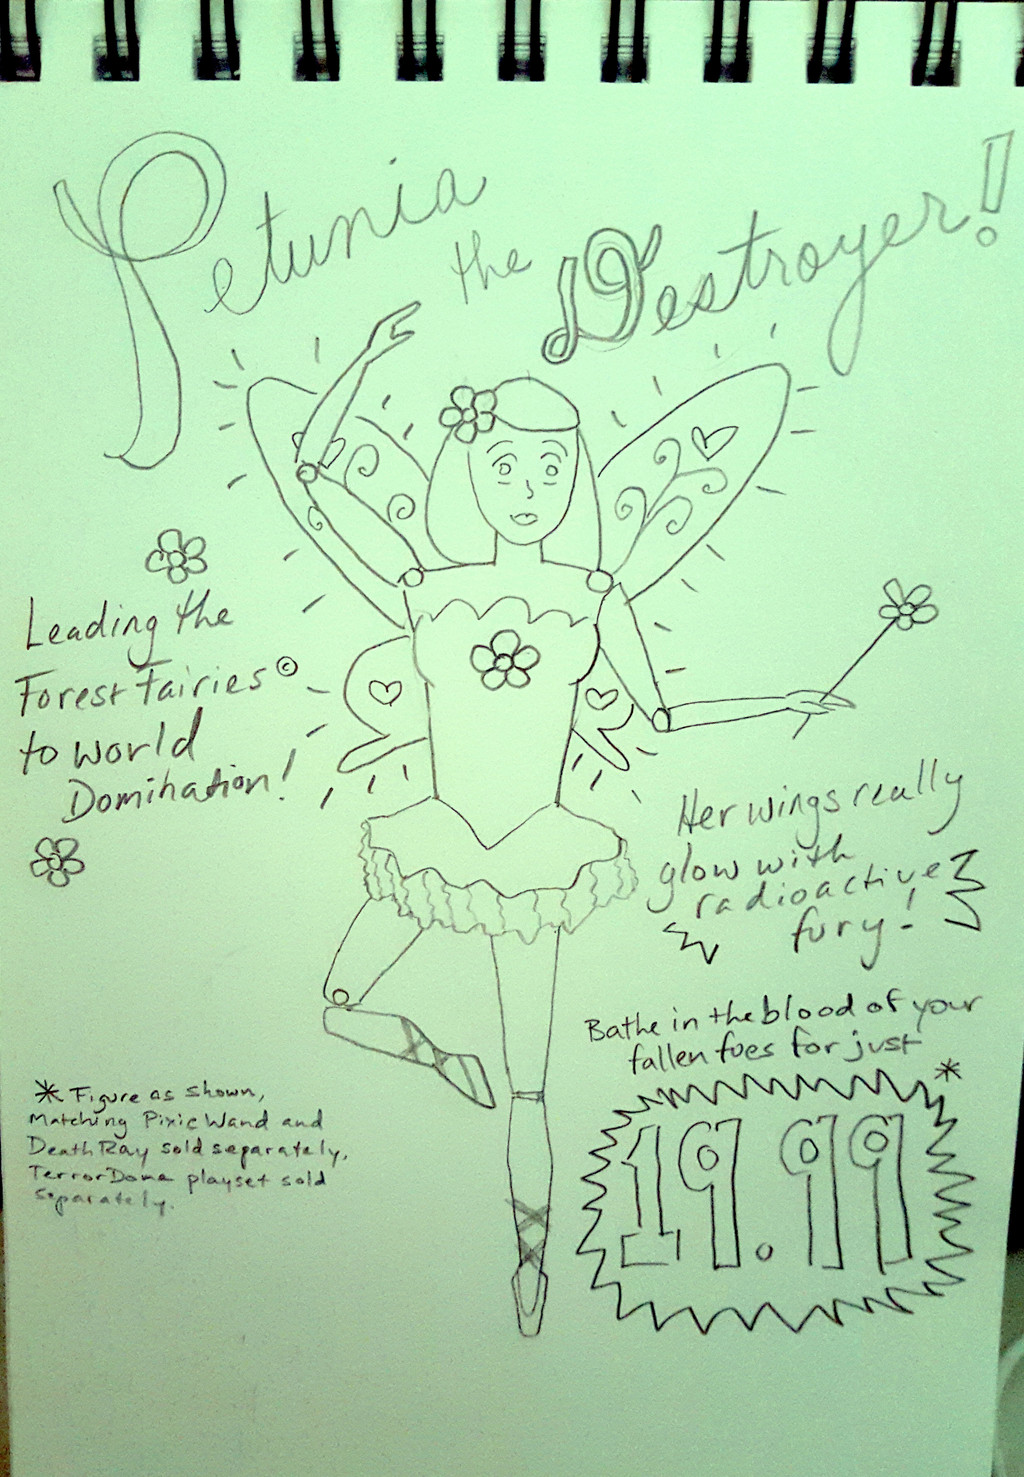 Petunia
the
Destroyer!
Leading the
Forest Fairies©
to world
Domination!
Her wings really
glow with
radioactive
fury!
Bathe in the blood of your
fallen foes for just
19.99*
* Figure as shown,
Matching Pixie Wand and
Death Ray sold separately,
TerrorDome playset sold
separately.